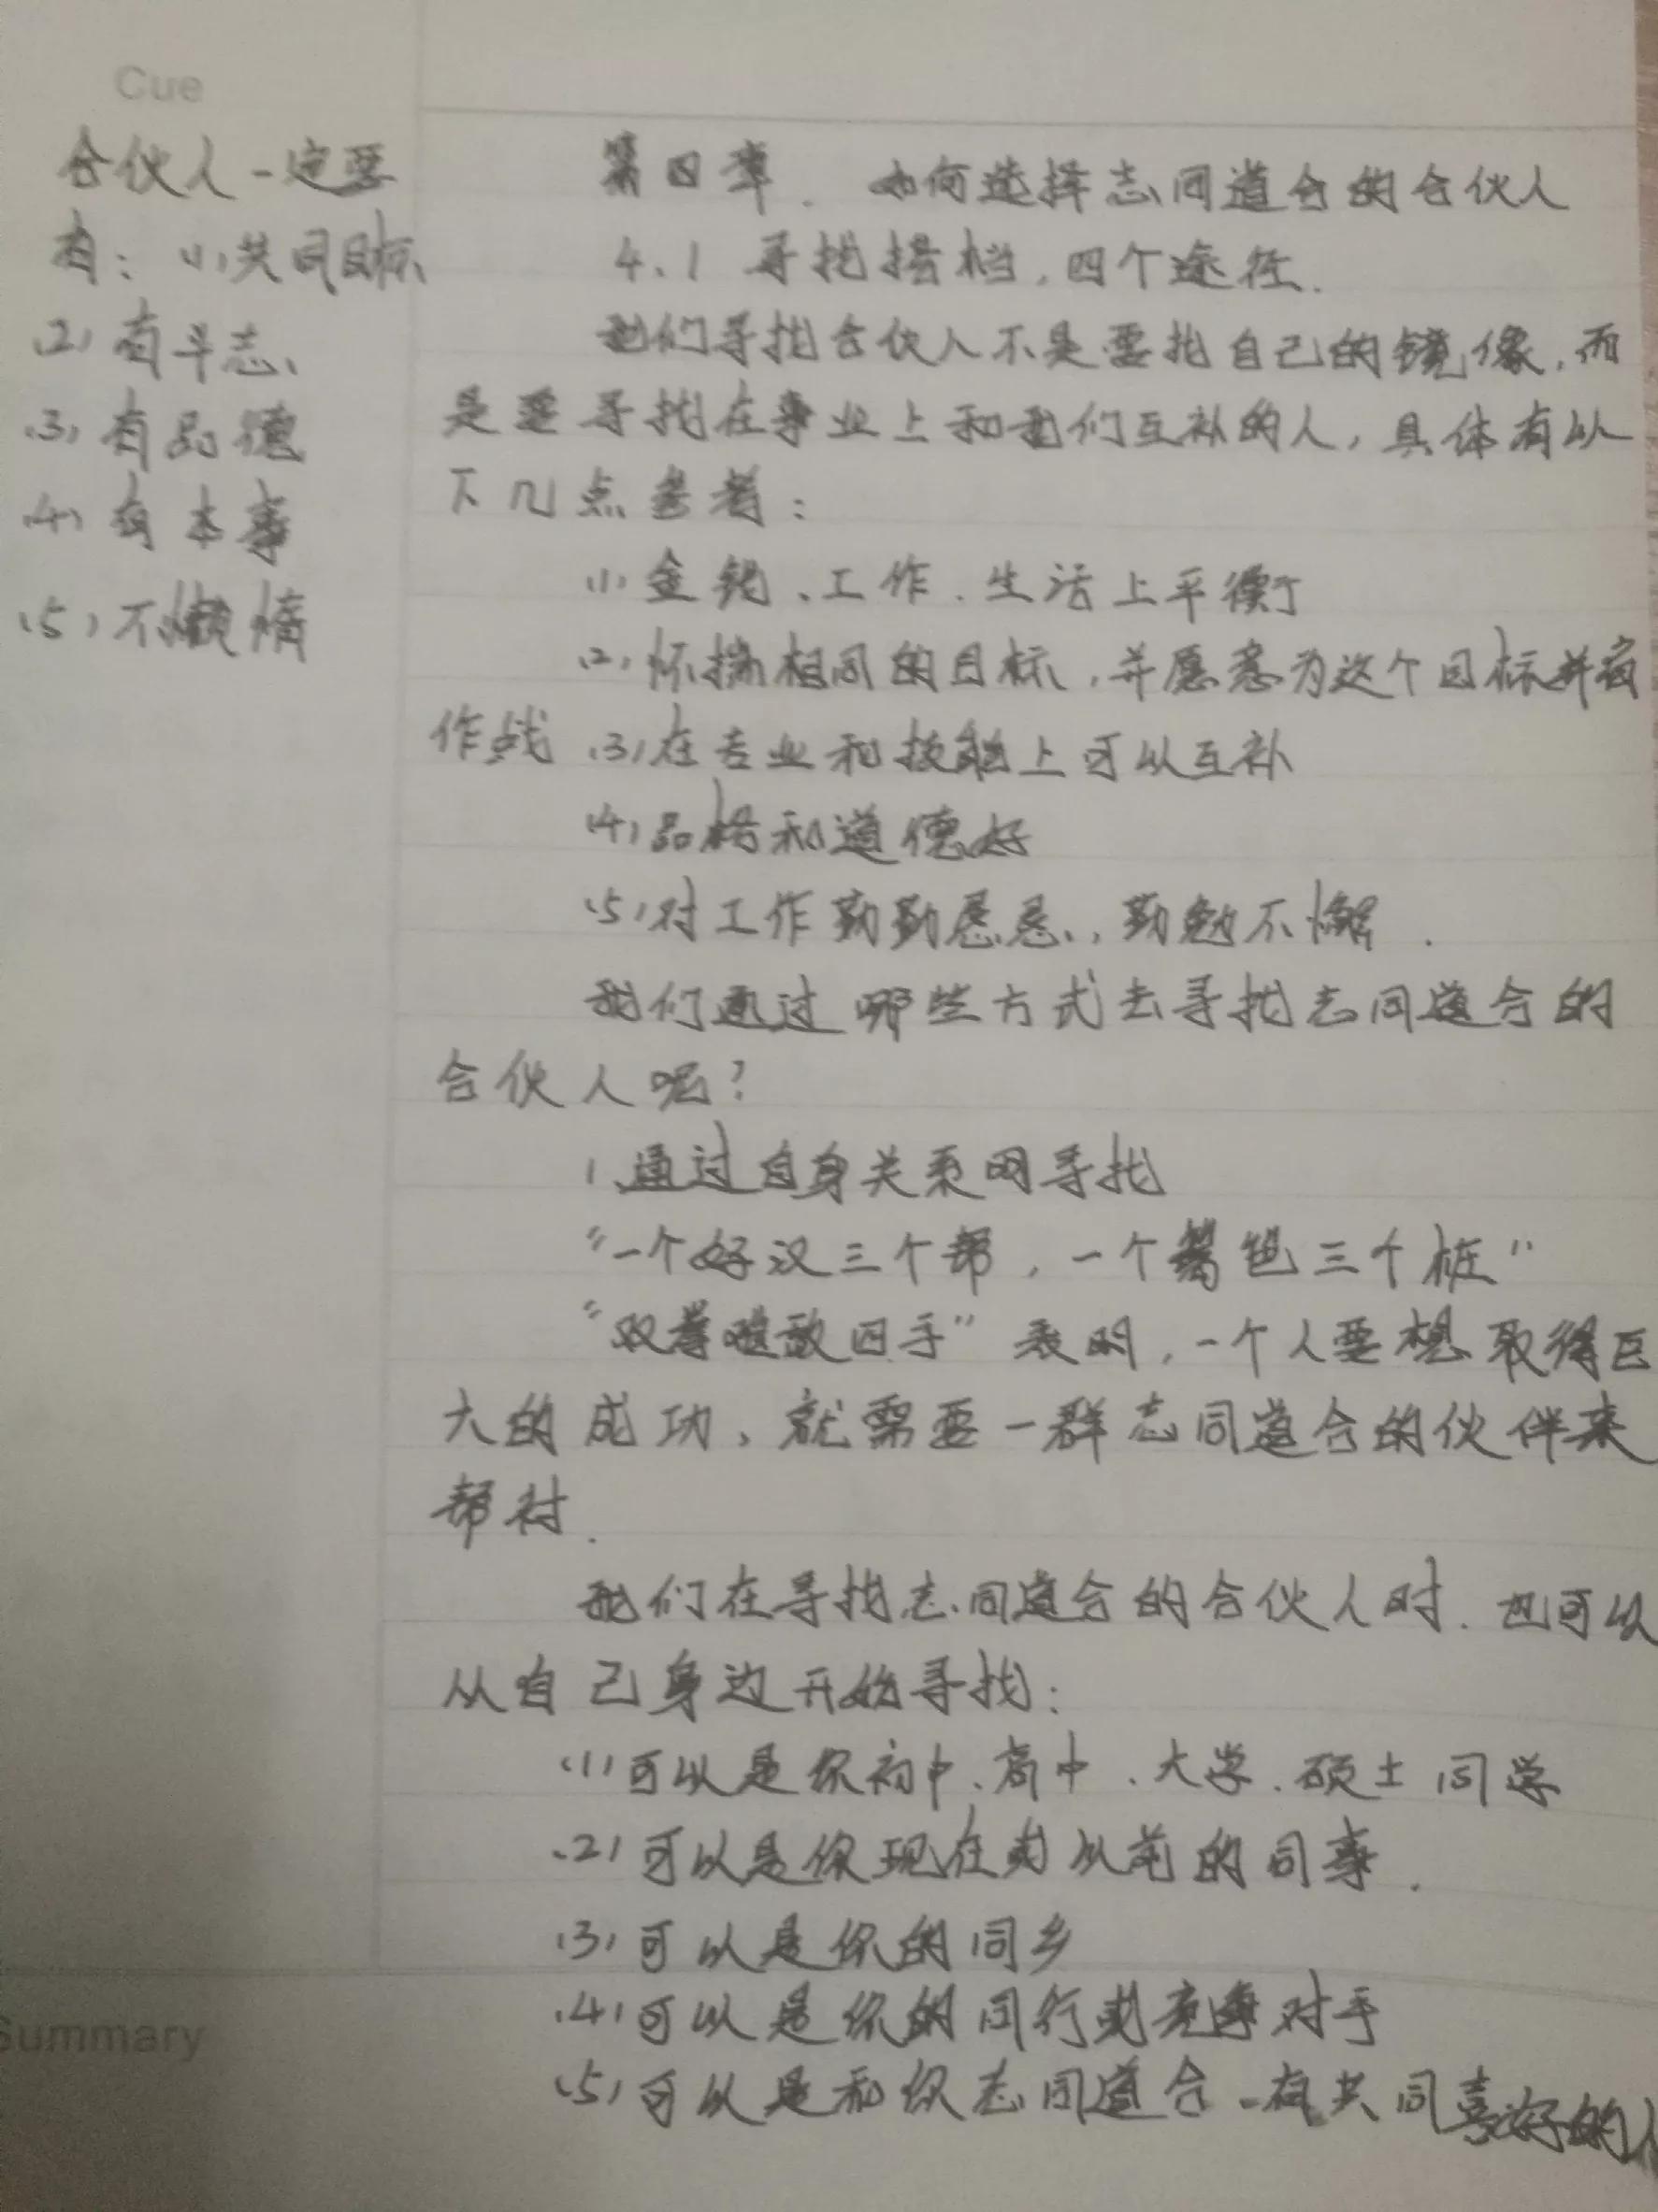 Cue
合伙人一定要
有：(1)共同目标
(2)有斗志
(3)有品德
(4)有本事
(5)不懒惰
第四章. 如何选择志同道合的合伙人
4.1 寻找搭档,四个途径.
我们寻找合伙人不是要找自己的镜像,而
是要寻找在事业上和我们互补的人,具体有以
下几点参考：
(1)金钱、工作、生活上平衡
(2)怀揣相同的目标,并愿意为这个目标并肩
作战 (3)在专业和技能上可以互补
(4)品格和道德好
(5)对工作勤勤恳恳,勤勉不懈.
我们通过哪些方式去寻找志同道合的
合伙人呢?
1、通过自身关系网寻找
“一个好汉三个帮,一个篱笆三个桩”
“双拳难敌四手”表明,一个人要想取得巨
大的成功,就需要一群志同道合的伙伴来
帮衬.
我们在寻找志同道合的合伙人时.也可以
从自己身边开始寻找：
(1)可以是你初中、高中、大学、硕士同学
(2)可以是你现在或以前的同事.
(3)可以是你的同乡
(4)可以是你的同行或竞争对手
(5)可以是和你志同道合、有共同喜好的人
Summary